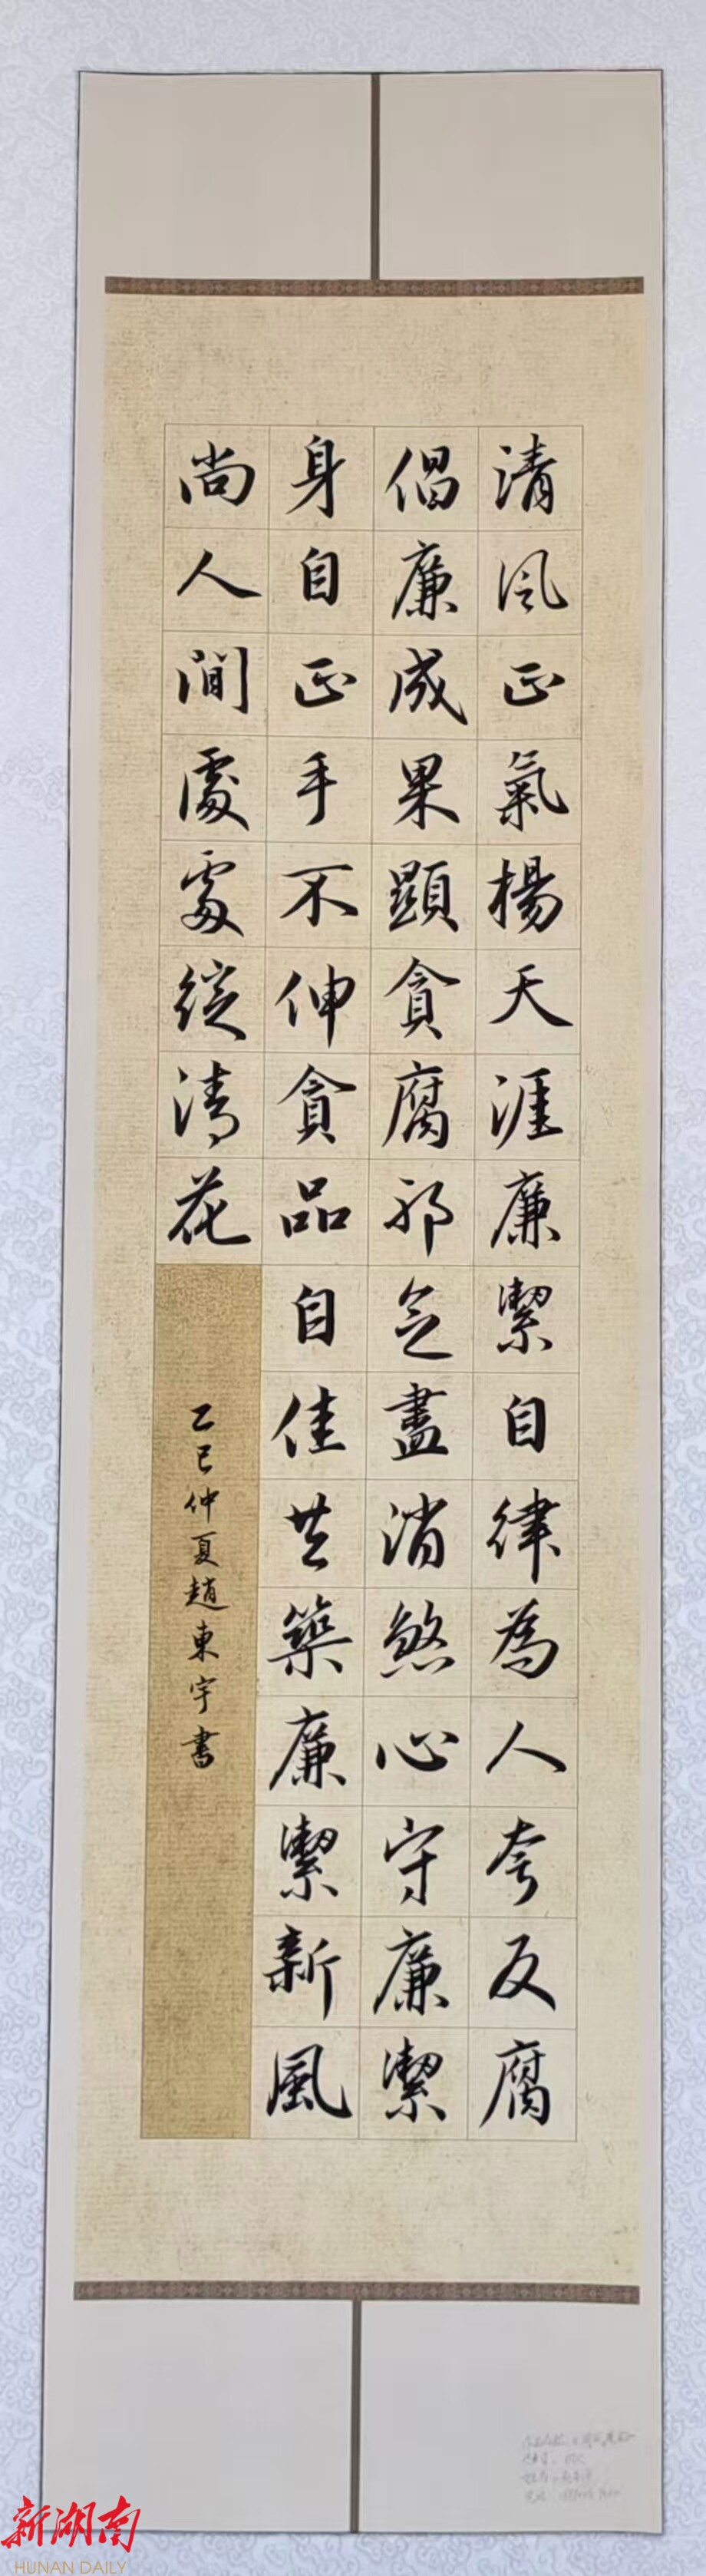 清風正氣楊天涯廉潔自律為人夸反腐
倡廉成果顯貪腐邪念盡消煞心守廉潔
身自正手不伸貪品自佳共築廉潔新風
尚人間處處綻清花
乙巳仲夏趙東宇書
新湖南
HUNAN DAILY